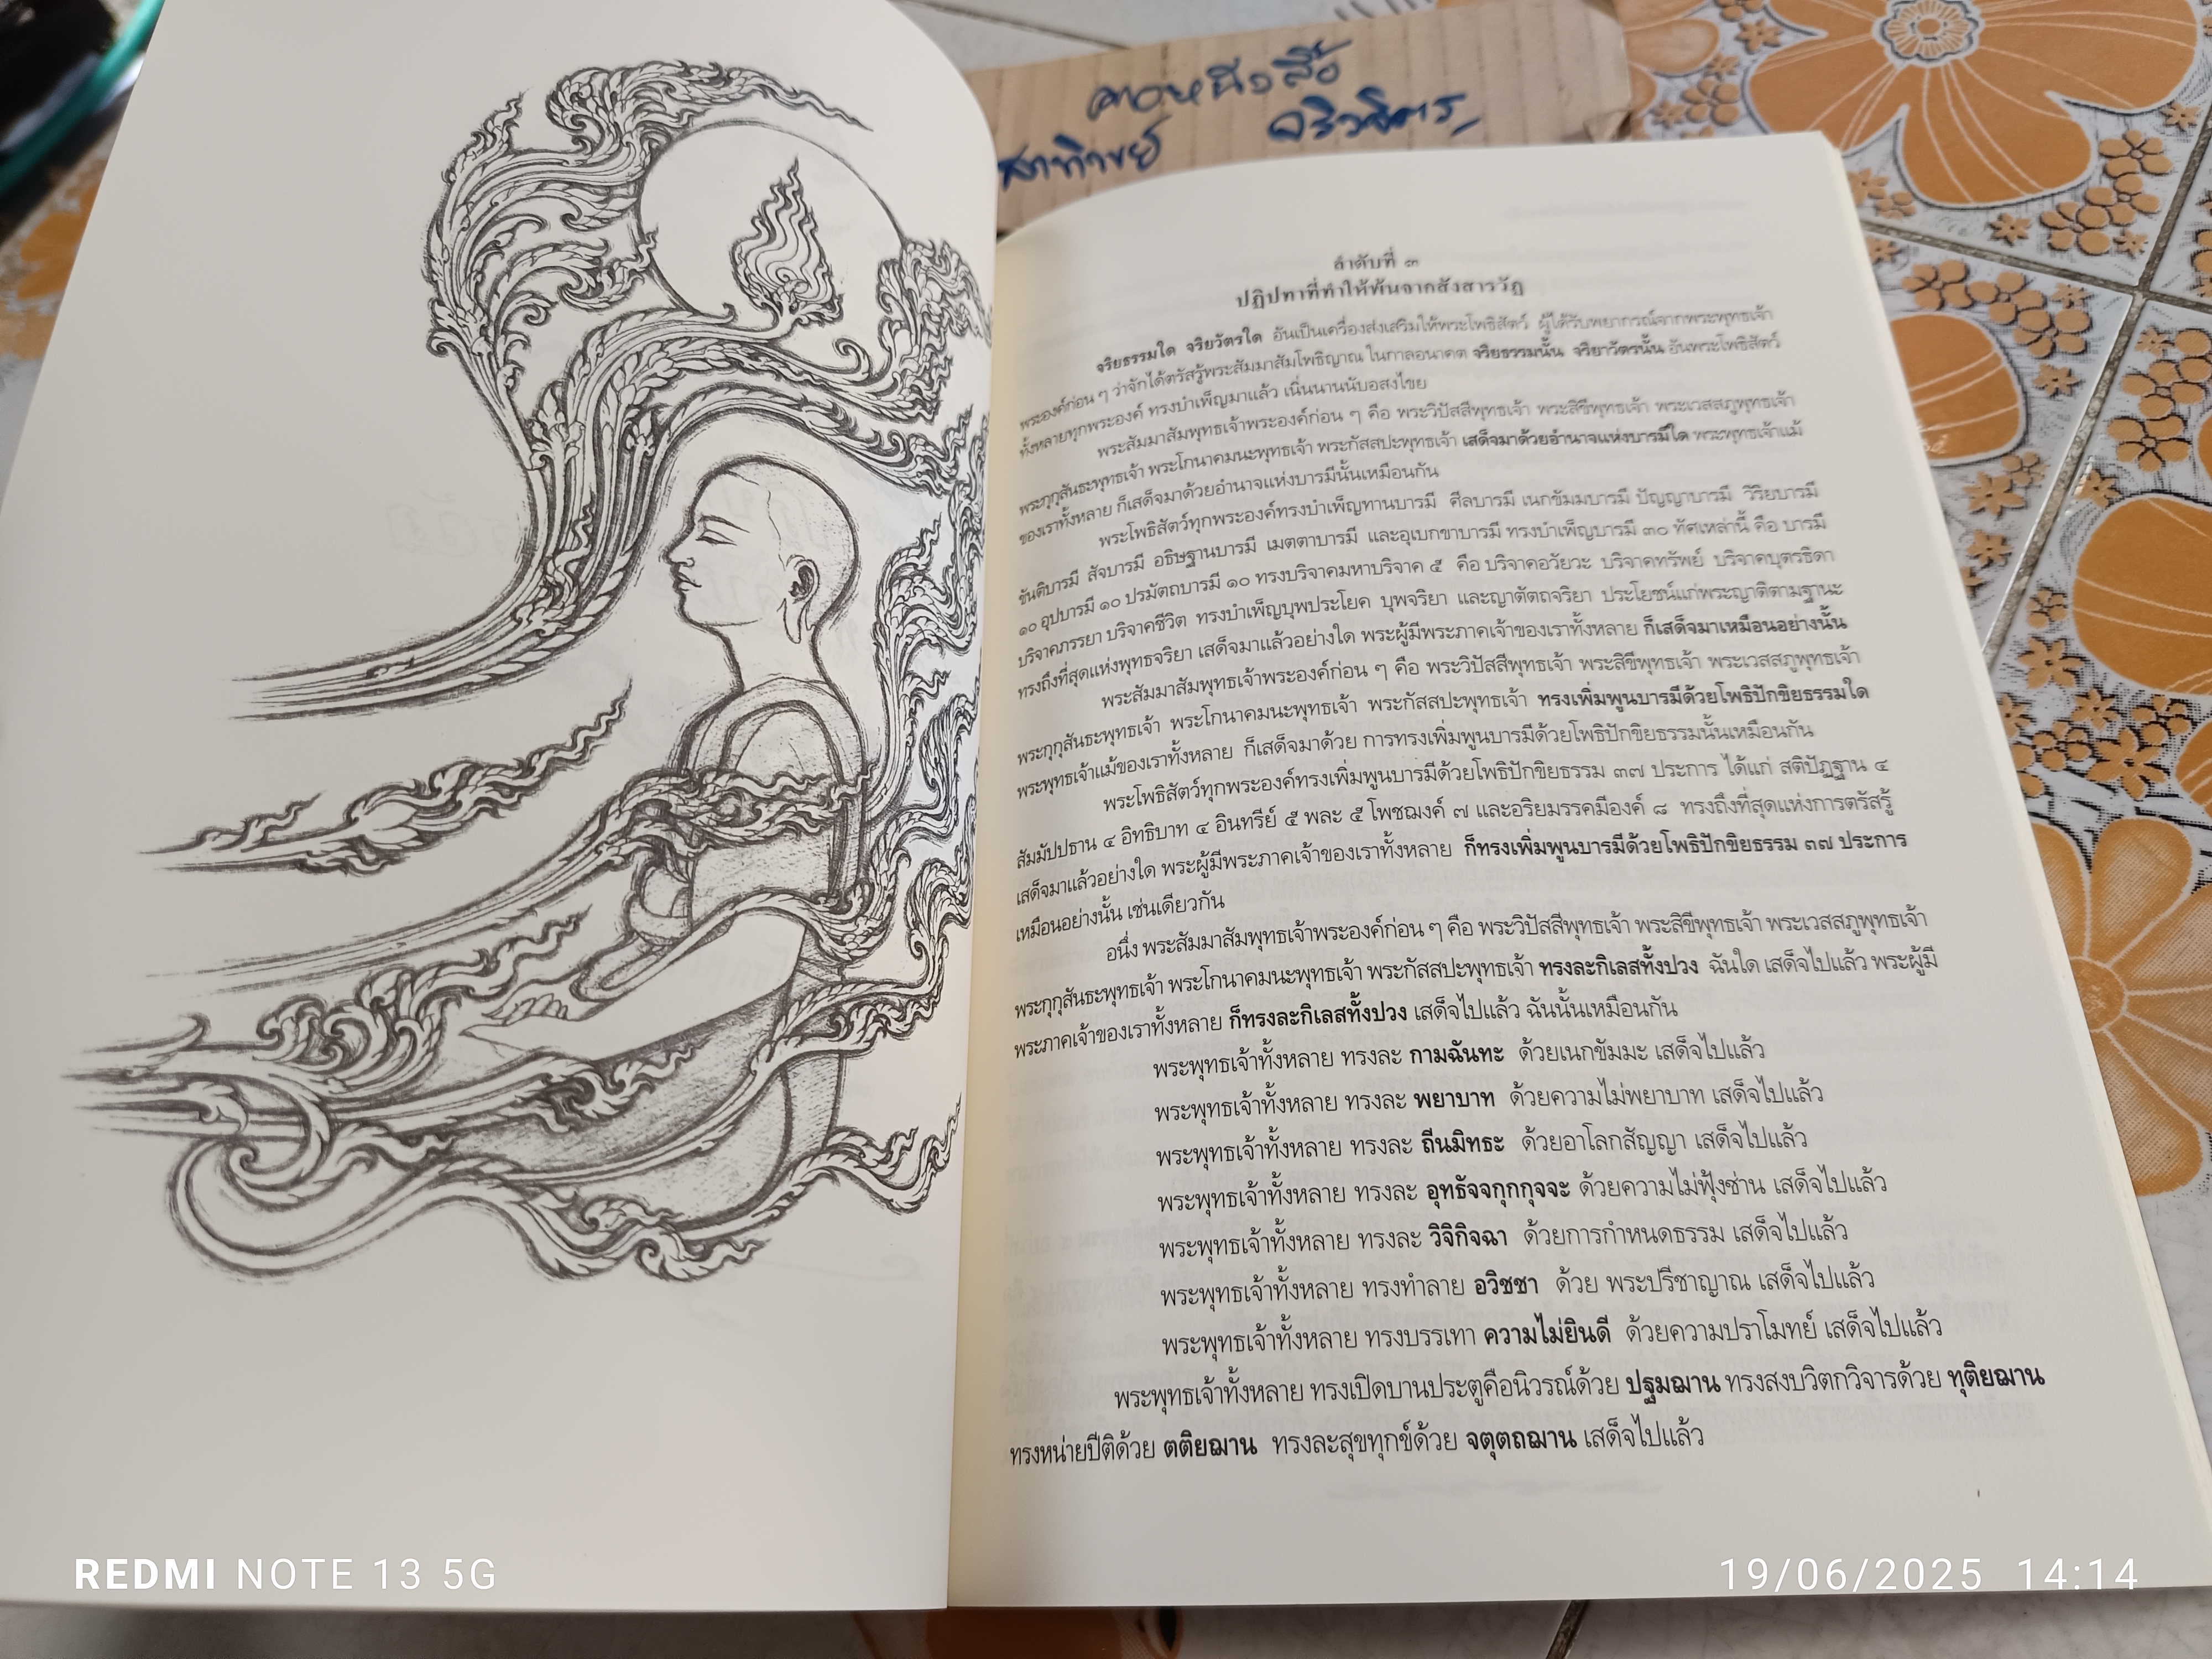 ลำดับที่ ๓
ปฏิปทาที่ทำให้พ้นจากสังสารวัฏ
จริยธรรมใด จริยวัตรใด อันเป็นเครื่องส่งเสริมให้พระโพธิสัตว์ ผู้ได้รับพยากรณ์จากพระพุทธเจ้า
พระองค์ก่อน ๆ ว่าจักได้ตรัสรู้พระสัมมาสัมโพธิญาณ ในกาลอนาคต จริยธรรมนั้น จริยาวัตรนั้น อันพระโพธิสัตว์
ทั้งหลายทุกพระองค์ ทรงบำเพ็ญมาแล้ว เนิ่นนานนับอสงไขย
พระสัมมาสัมพุทธเจ้าพระองค์ก่อน ๆ คือ พระวิปัสสีพุทธเจ้า พระสิขีพุทธเจ้า พระเวสสภูพุทธเจ้า
พระกุกุสันธะพุทธเจ้า พระโกนาคมนะพุทธเจ้า พระกัสสปะพุทธเจ้า เสด็จมาด้วยอำนาจแห่งบารมีใด พระพุทธเจ้าแม้
ของเราทั้งหลาย ก็เสด็จมาด้วยอำนาจแห่งบารมีนั้นเหมือนกัน
พระโพธิสัตว์ทุกพระองค์ทรงบำเพ็ญทานบารมี ศีลบารมี เนกขัมมบารมี ปัญญาบารมี วิริยบารมี
ขันติบารมี สัจบารมี อธิษฐานบารมี เมตตาบารมี และอุเบกขาบารมี ทรงบำเพ็ญบารมี ๓๐ ทัศเหล่านี้ คือ บารมี
๑๐ อุปบารมี ๑๐ ปรมัตถบารมี ๑๐ ทรงบริจาคมหาบริจาค ๕ คือ บริจาคอวัยวะ บริจาคทรัพย์ บริจาคบุตรธิดา
บริจาคภรรยา บริจาคชีวิต ทรงบำเพ็ญบุพประโยค บุพจริยา และญาตัตถจริยา ประโยชน์แก่พระญาติตามฐานะ
ทรงถึงที่สุดแห่งพุทธจริยา เสด็จมาแล้วอย่างใด พระผู้มีพระภาคเจ้าของเราทั้งหลาย ก็เสด็จมาเหมือนอย่างนั้น
พระสัมมาสัมพุทธเจ้าพระองค์ก่อน ๆ คือ พระวิปัสสีพุทธเจ้า พระสิขีพุทธเจ้า พระเวสสภูพุทธเจ้า
พระกุกุสันธะพุทธเจ้า พระโกนาคมนะพุทธเจ้า พระกัสสปะพุทธเจ้า ทรงเพิ่มพูนบารมีด้วยโพธิปักขิยธรรมใด
พระพุทธเจ้าแม้ของเราทั้งหลาย ก็เสด็จมาด้วย การทรงเพิ่มพูนบารมีด้วยโพธิปักขิยธรรมนั้นเหมือนกัน
พระโพธิสัตว์ทุกพระองค์ทรงเพิ่มพูนบารมีด้วยโพธิปักขิยธรรม ๓๗ ประการ ได้แก่ สติปัฏฐาน ๔
สัมมัปปธาน ๔ อิทธิบาท ๔ อินทรีย์ ๕ พละ ๕ โพชฌงค์ ๗ และอริยมรรคมีองค์ ๘ ทรงถึงที่สุดแห่งการตรัสรู้
เสด็จมาแล้วอย่างใด พระผู้มีพระภาคเจ้าของเราทั้งหลาย ก็ทรงเพิ่มพูนบารมีด้วยโพธิปักขิยธรรม ๓๗ ประการ
เหมือนอย่างนั้น เช่นเดียวกัน
อนึ่ง พระสัมมาสัมพุทธเจ้าพระองค์ก่อน ๆ คือ พระวิปัสสีพุทธเจ้า พระสิขีพุทธเจ้า พระเวสสภูพุทธเจ้า
พระกุกุสันธะพุทธเจ้า พระโกนาคมนะพุทธเจ้า พระกัสสปะพุทธเจ้า ทรงละกิเลสทั้งปวง ฉันใด เสด็จไปแล้ว พระผู้มี
พระภาคเจ้าของเราทั้งหลาย ก็ทรงละกิเลสทั้งปวง เสด็จไปแล้ว ฉันนั้นเหมือนกัน
พระพุทธเจ้าทั้งหลาย ทรงละ กามฉันทะ ด้วยเนกขัมมะ เสด็จไปแล้ว
พระพุทธเจ้าทั้งหลาย ทรงละ พยาบาท ด้วยความไม่พยาบาท เสด็จไปแล้ว
พระพุทธเจ้าทั้งหลาย ทรงละ ถีนมิทธะ ด้วยอาโลกสัญญา เสด็จไปแล้ว
พระพุทธเจ้าทั้งหลาย ทรงละ อุทธัจจกุกกุจจะ ด้วยความไม่ฟุ้งซ่าน เสด็จไปแล้ว
พระพุทธเจ้าทั้งหลาย ทรงละ วิจิกิจฉา ด้วยการกำหนดธรรม เสด็จไปแล้ว
พระพุทธเจ้าทั้งหลาย ทรงทำลาย อวิชชา ด้วย พระปรีชาญาณ เสด็จไปแล้ว
พระพุทธเจ้าทั้งหลาย ทรงบรรเทา ความไม่ยินดี ด้วยความปราโมทย์ เสด็จไปแล้ว
พระพุทธเจ้าทั้งหลาย ทรงเปิดบานประตูคือนิวรณ์ด้วย ปฐมฌาน ทรงสงบวิตกวิจารด้วย ทุติยฌาน
ทรงหน่ายปีติด้วย ตติยฌาน ทรงละสุขทุกข์ด้วย จตุตถฌาน เสด็จไปแล้ว
REDMI NOTE 13 5G
19/06/2025 14:14